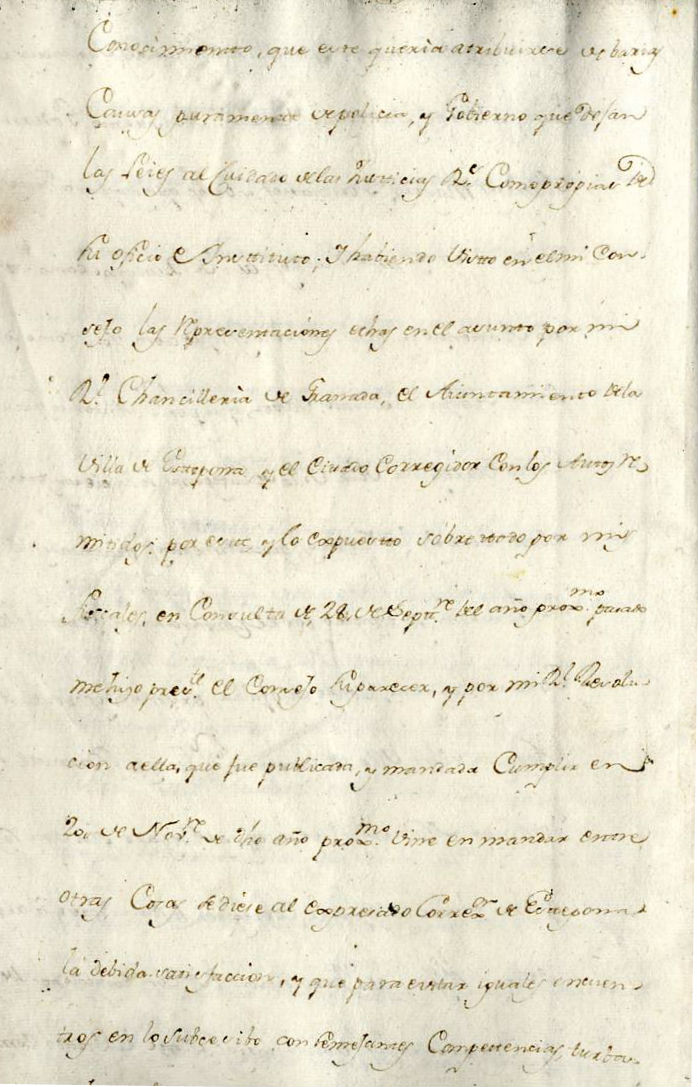 Conocimiento, que este queria atribuirse de barias
Causas puramente de policia, y Gobierno que dejan
las Leies al Cuidado de las Justicias R.s Como propias de
su oficio e Instituto; Y habiendo visto en el mi Con-
sejo las Representaciones echas en el asunto por mi
R.l Chancilleria de Granada, el Aiuntamiento de la
Villa de Estepona, y el Citado Corregidor Con los Autos Re-
mitidos por este, y lo expuesto sobre todo por mis
fiscales, en Consulta de 28, de Sept.re del año prox.mo pasado
me hizo pres.te el Consejo su parecer, y por mi R.l Resolu-
cion a ella, que fue publicada, y mandada Cumplir en
20 de Nov.re de dho año prox.mo Vine en mandar entre
otras Cosas se diese al expresado Correx.or de Estepona
la debida satisfaccion, y que para evitar iguales encuen-
tros en lo subcesibo con semejantes Competencias, turba-